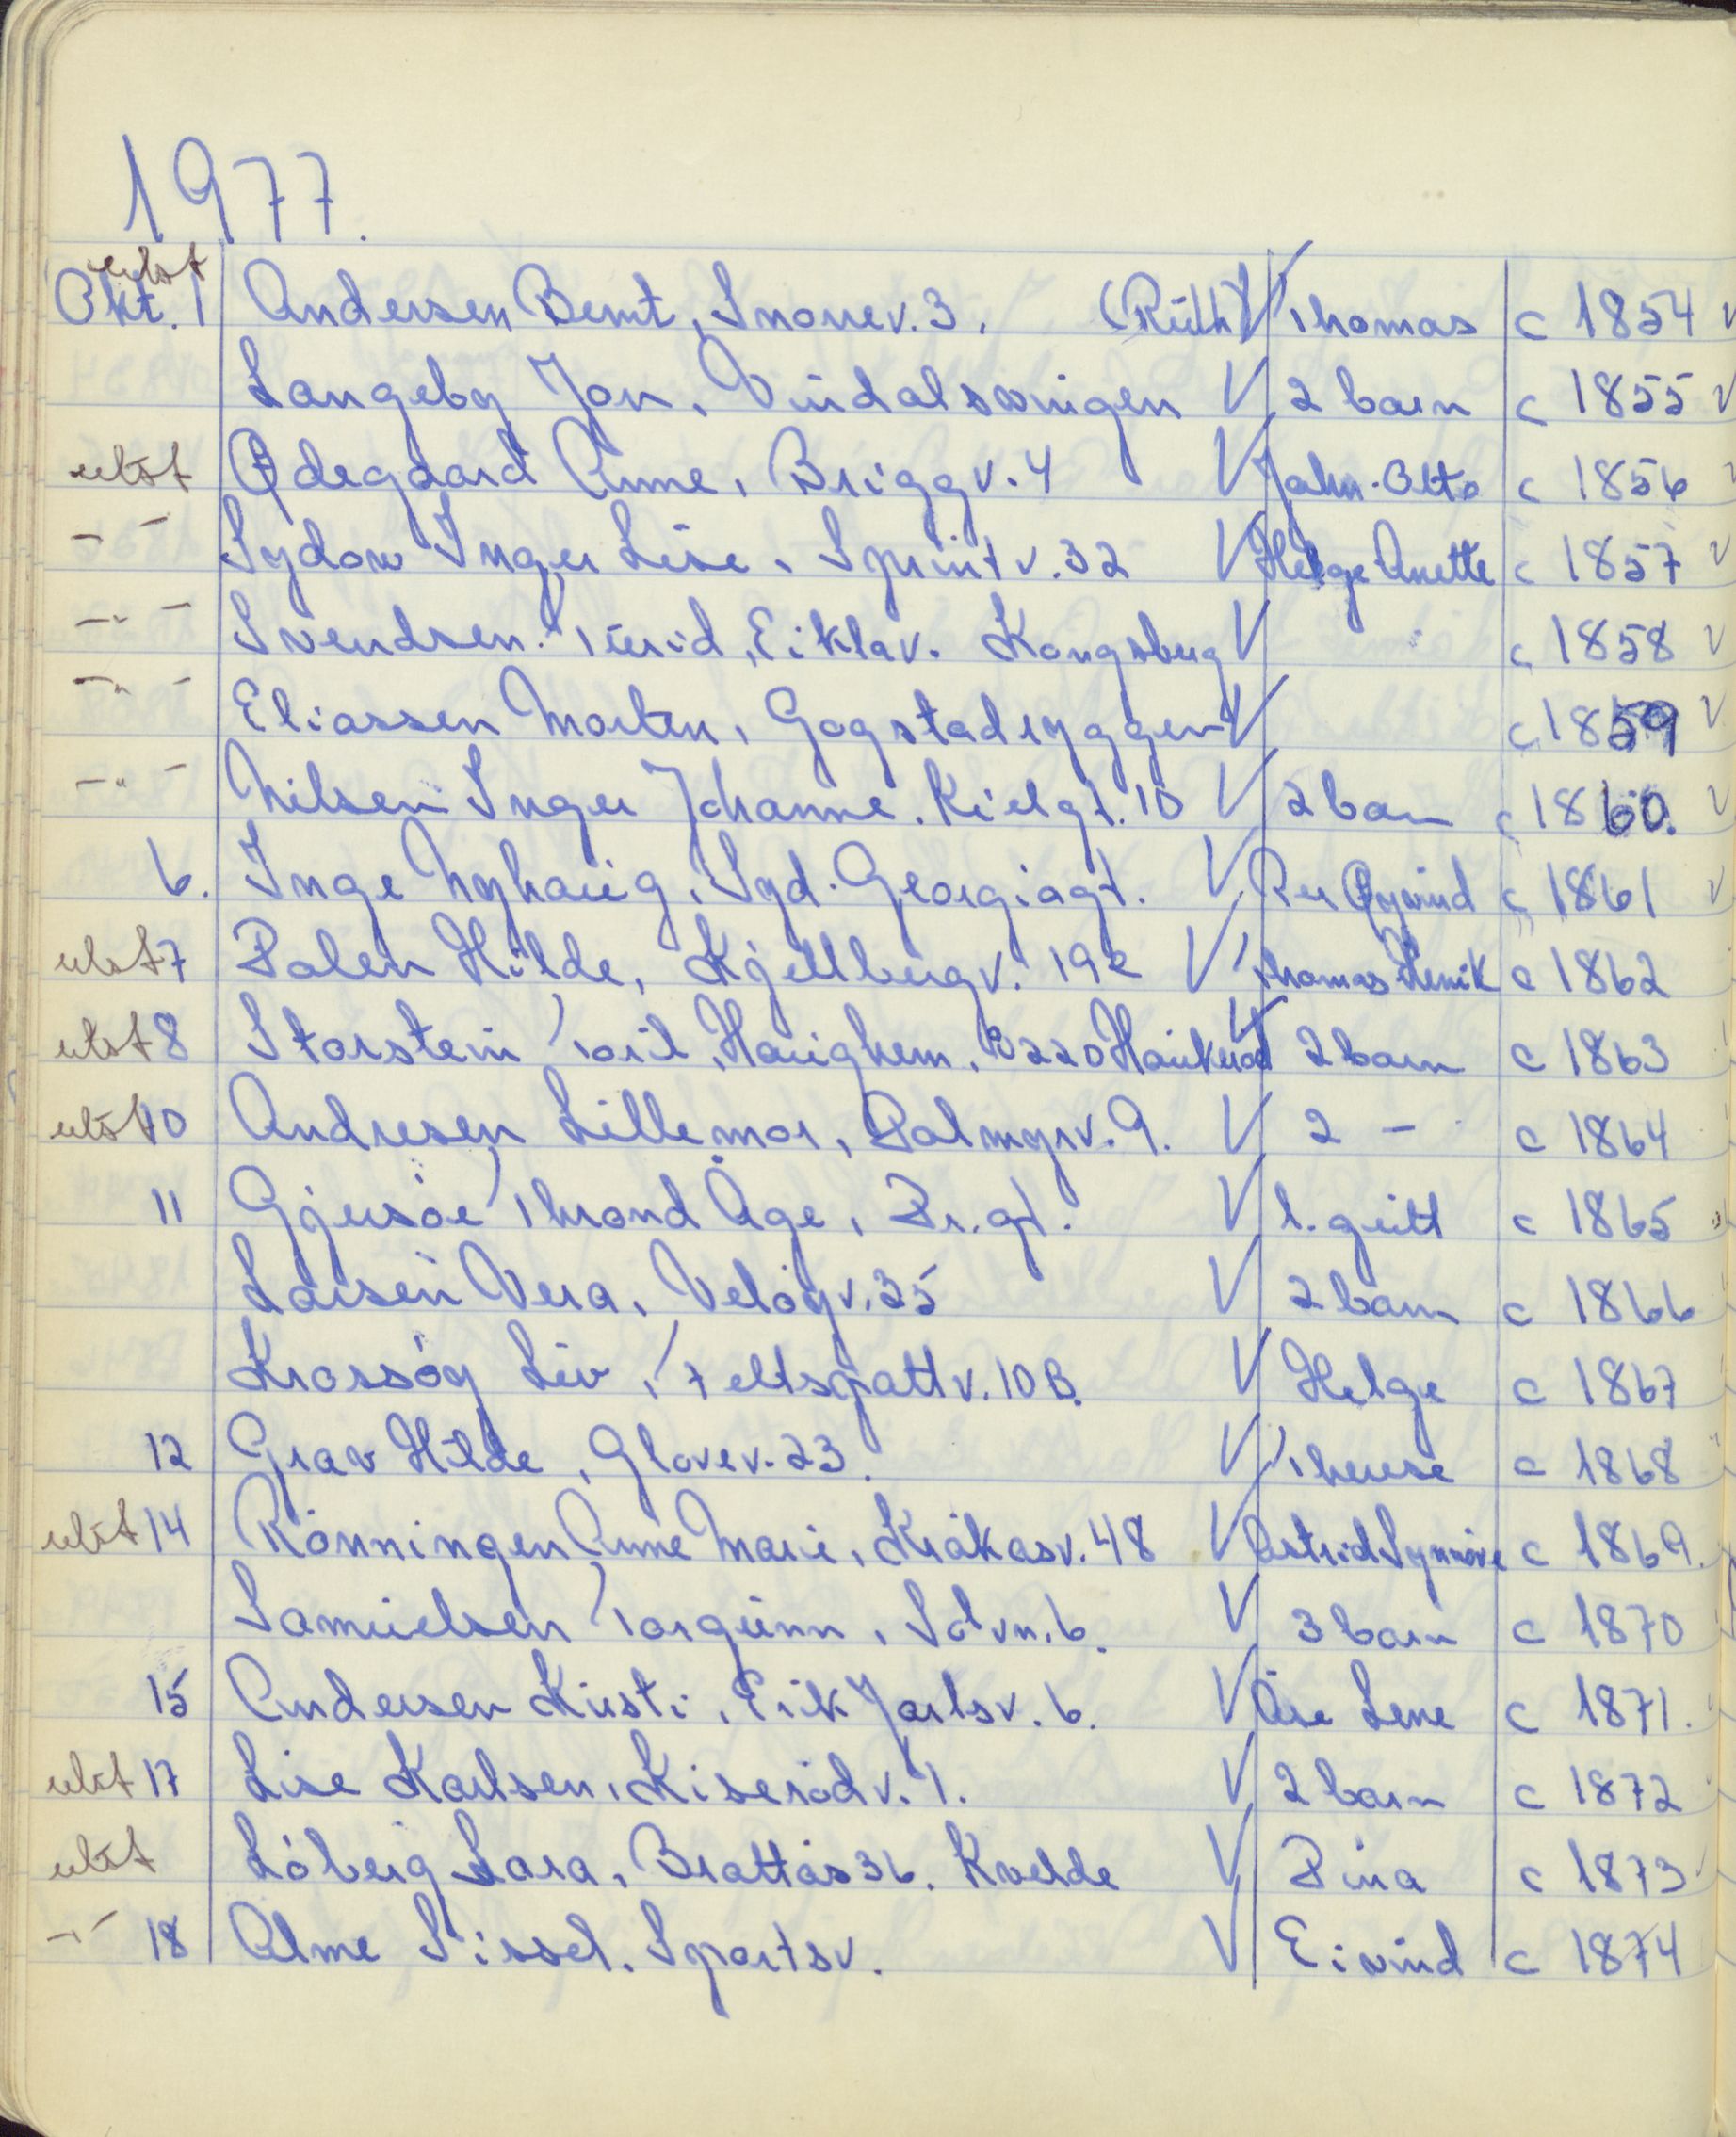 1977.
utst
Okt. 1 Andersen Bernt, Snorrev. 3. (Ruth) V Thomas c 1854 V
Langeby Jon, Vindalsvingen V 2 barn c 1855 V
utst Ødegaard Anne, Briggv. 4 V John-Otto c 1856 V
- - Sydow Inger Lise, Sprintv. 32 V Helge Anette c 1857 V
-"- Svendsen Turid, Eiklav. Kongsberg V c 1858 V
-"- Eliassen Morten, Gogstadryggen V c 1859 V
-"- Nilsen Inger Johanne. Kielgt. 10 V 2 barn c 1860. V
6. Inge Nyhaug, Syd. Georgiagt. V Per Øyvind c 1861 V
utst 7 Palen Hilde, Kjellbergv. 19c V Thomas Henrik c 1862
utst 8 Storstein Toril, Haughem, 3220 Haukerød V 2 barn c 1863
utst 10 Andresen Lillemor, Palmyrv. 9. V 2 - c 1864
11 Gjersöe Thrond Åge, Pr.gt. V l. gutt c 1865
Larsen Vera, Velöyv. 35 V 2 barn c 1866
Krossöy Liv, Feltspattv. 10 B. V Helge c 1867
12 Grav Hilde, Glovev. 23. V Therese c 1868
utst 14 Rönningen Anne Marie, Kråkåsv. 48 V Astrid Synnöve c 1869.
Samuelsen Torgunn, Solvn. 6. V 3 barn c 1870
15 Andersen Kirsti, Eirik Jarlsv. 6. V Åse Lene c 1871.
utst 17 Lise Karlsen, Kiserödv. 1. V 2 barn c 1872
utst Löberg Lara, Brattås 36. Kvelde V Pina c 1873
-"- 18 Alme Sissel, Sportsv. V Eivind c 1874